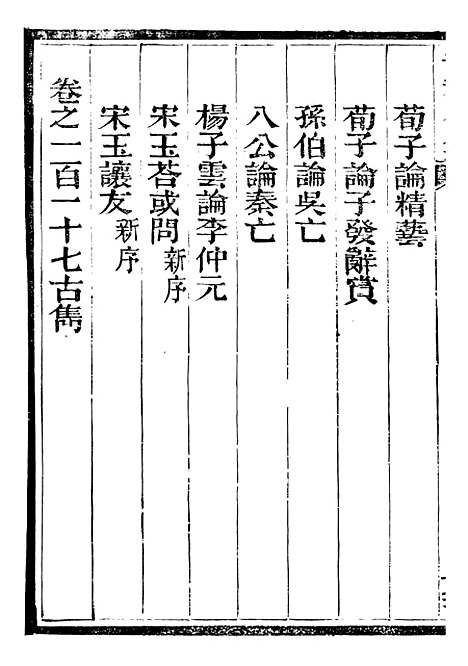 荀子論精藝
荀子論子發辭賞
孫伯論吳亡
八公論秦亡
楊子雲論李仲元
宋玉荅或問新序
宋玉讓友新序
卷之一百一十七古雋